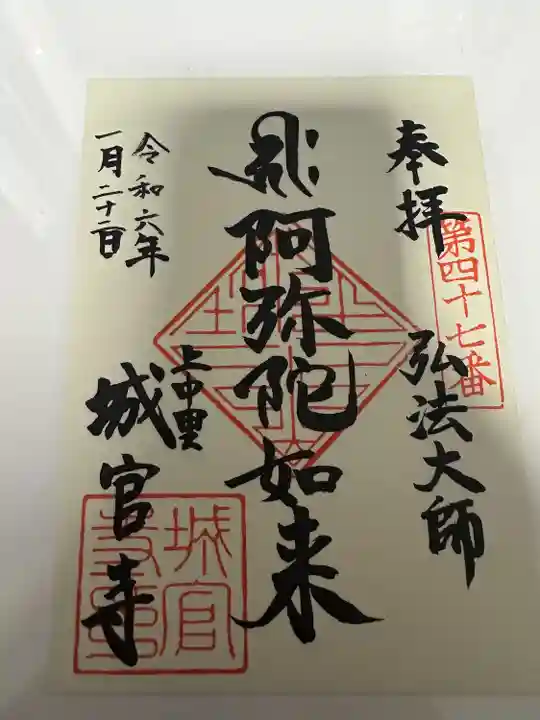 奉拝
第四十七番
弘法大師
阿弥陀如来
上中里
城官寺
令和六年
一月二十二日